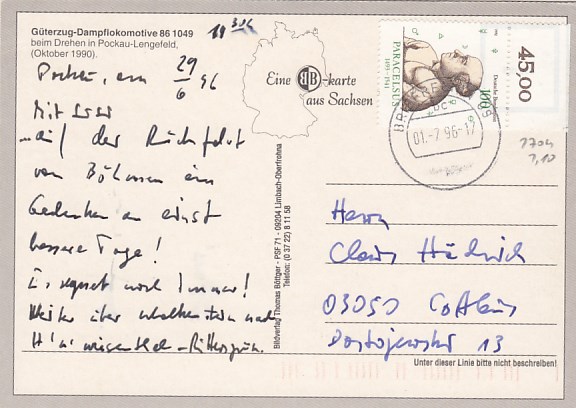 Güterzug-Dampflokomotive 86 1049
beim Drehen in Pockau-Lengefeld,
(Oktober 1990).
29/6 96
Mit
auf der Rückfahrt
von Böhmen ein
Gedenken an einst
bessere Tage!
Es regnet noch immer!
Weiter über nach
Eine BB-karte
aus Sachsen
Bildverlag Thomas Böttger - PSF 71 - 09204 Limbach-Oberfrohna
Telefon: (0 37 22) 8 11 58
PARACELSUS
1493-1541
Deutsche Bundespost
100
45,00
01.-7.96-17
Herrn
Claus
03050 Cottbus
Dostojewskistr 13
Unter dieser Linie bitte nicht beschreiben!